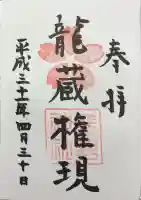 奉拝
龍蔵権現
平成三十一年四月三十日